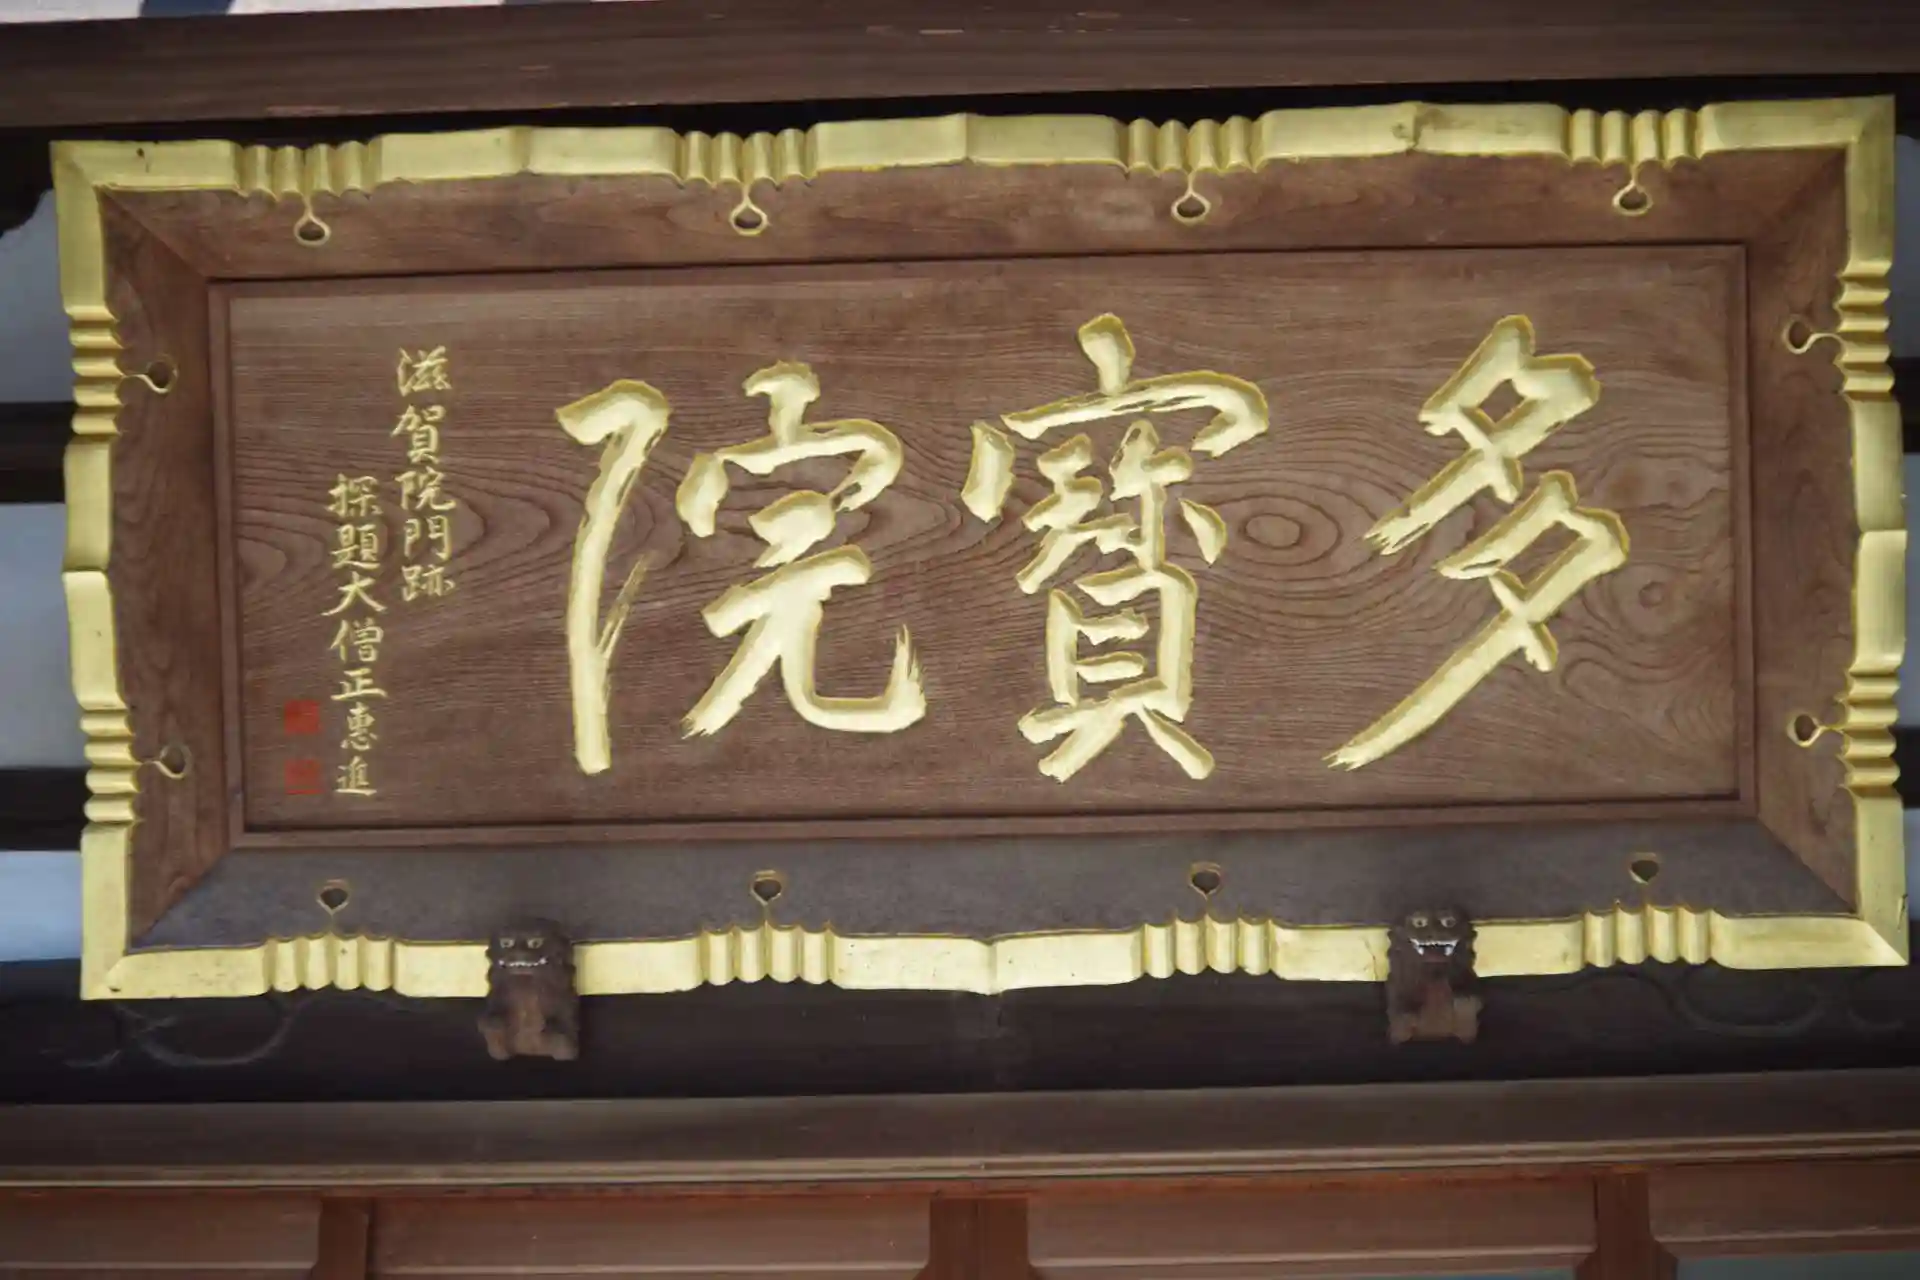 多寳院
滋賀院門跡
探題大僧正惠進